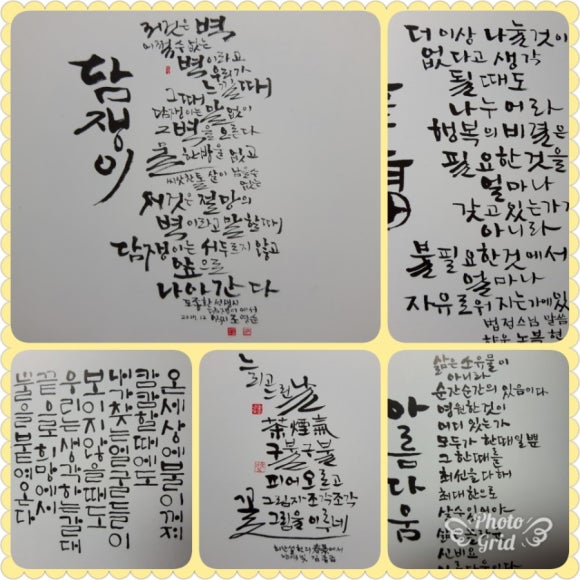 담쟁이
저것은 벽
어쩔 수 없는
벽이라고
우리가
느낄 때
그때
담쟁이는 말없이
그 벽을 오른다
물 한방울 없고
씨앗 한 톨 살아남을 수
없는
저것은 절망의
벽이라고 말할 때
담쟁이는 서두르지 않고
앞으로
나아간다
도종환
더 이상 나눌 것이
없다고 생각
될 때도
나누어라
행복의 비결은
필요한 것을
얼마나
갖고 있는가가
아니라
불필요한 것에서
얼마나
자유로워 지는가에 있
법정스님 말씀
온 세상에 불이 꺼져
캄캄할 때에도
내가 찾는 얼굴들이
보이지 않을 때도
우리는 생각하는 갈대
끝으로 희망에서
불을 붙여 온다
느리고 그런 날
茶煙氣
구불구불
피어오르고
그림자 조각조각
꽃그림을 이루네
아름다움
삶은 소유물이
아니라
순간순간의 있음이다
영원한 것이
어디 있는가
모두가 한때일 뿐
그 한때를
최선을 다해
최대한으로
살 수 있어야
신비요
아름다움이다
Photo
Grid